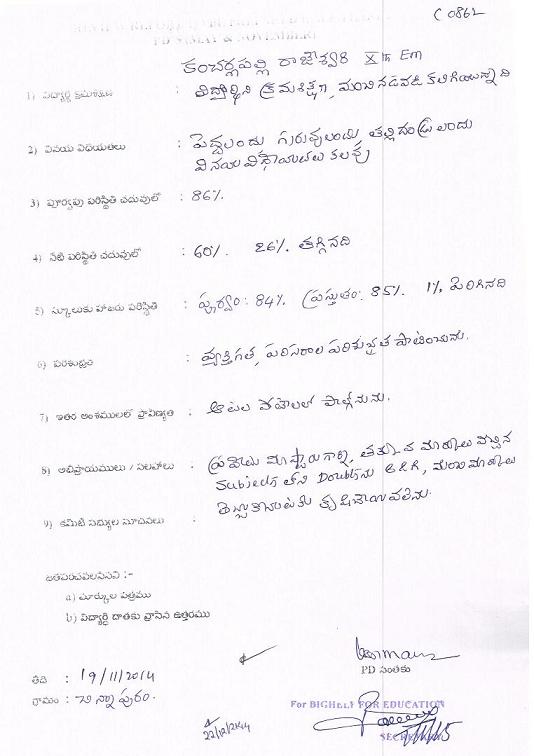 C 0862
కంచర్లపల్లి రాజేశ్వరి Xth Em
1) విద్యార్థి క్రమశిక్షణ : విద్యార్థిని క్రమశిక్షణ, మంచి నడవడి కలిగియున్నది
2) వినయ విధేయతలు : పెద్దలందు గురువులందు, తల్లిదండ్రులందు
వినయవిధేయతలు కలవు
3) పూర్వపు పరిస్థితి చదువులో : 86%.
4) నేటి పరిస్థితి చదువులో : 60%. 26%. తగ్గినది
5) స్కూలుకు హాజరు పరిస్థితి : పూర్వం: 84%. ప్రస్తుతం: 85%. 1%. పెరిగినది
6) పరిశుభ్రం : వ్యక్తిగత, పరిసరాల పరిశుభ్రత పాటించును.
7) ఇతర అంశములలో ప్రావీణ్యత : ఆటల పోటీలలో పాల్గొనును.
8) అభిప్రాయములు / సలహాలు : తక్కువ మార్కులు వచ్చిన
Subjects లోని Doubts ను మంచి మార్కులు
తెచ్చుకొనుటకు కృషి చేయవలెను.
9) కమిటి సభ్యుల సూచనలు :
జతపరచవలసినవి :-
a) మార్కుల పత్రము
b) విద్యార్థి దాతకు వ్రాసిన ఉత్తరము
PD సంతకం
తేది : 19/11/2014
గ్రామం : చిన్నాపురం.
For BIGHELP FOR EDUCATION
SECRETARY